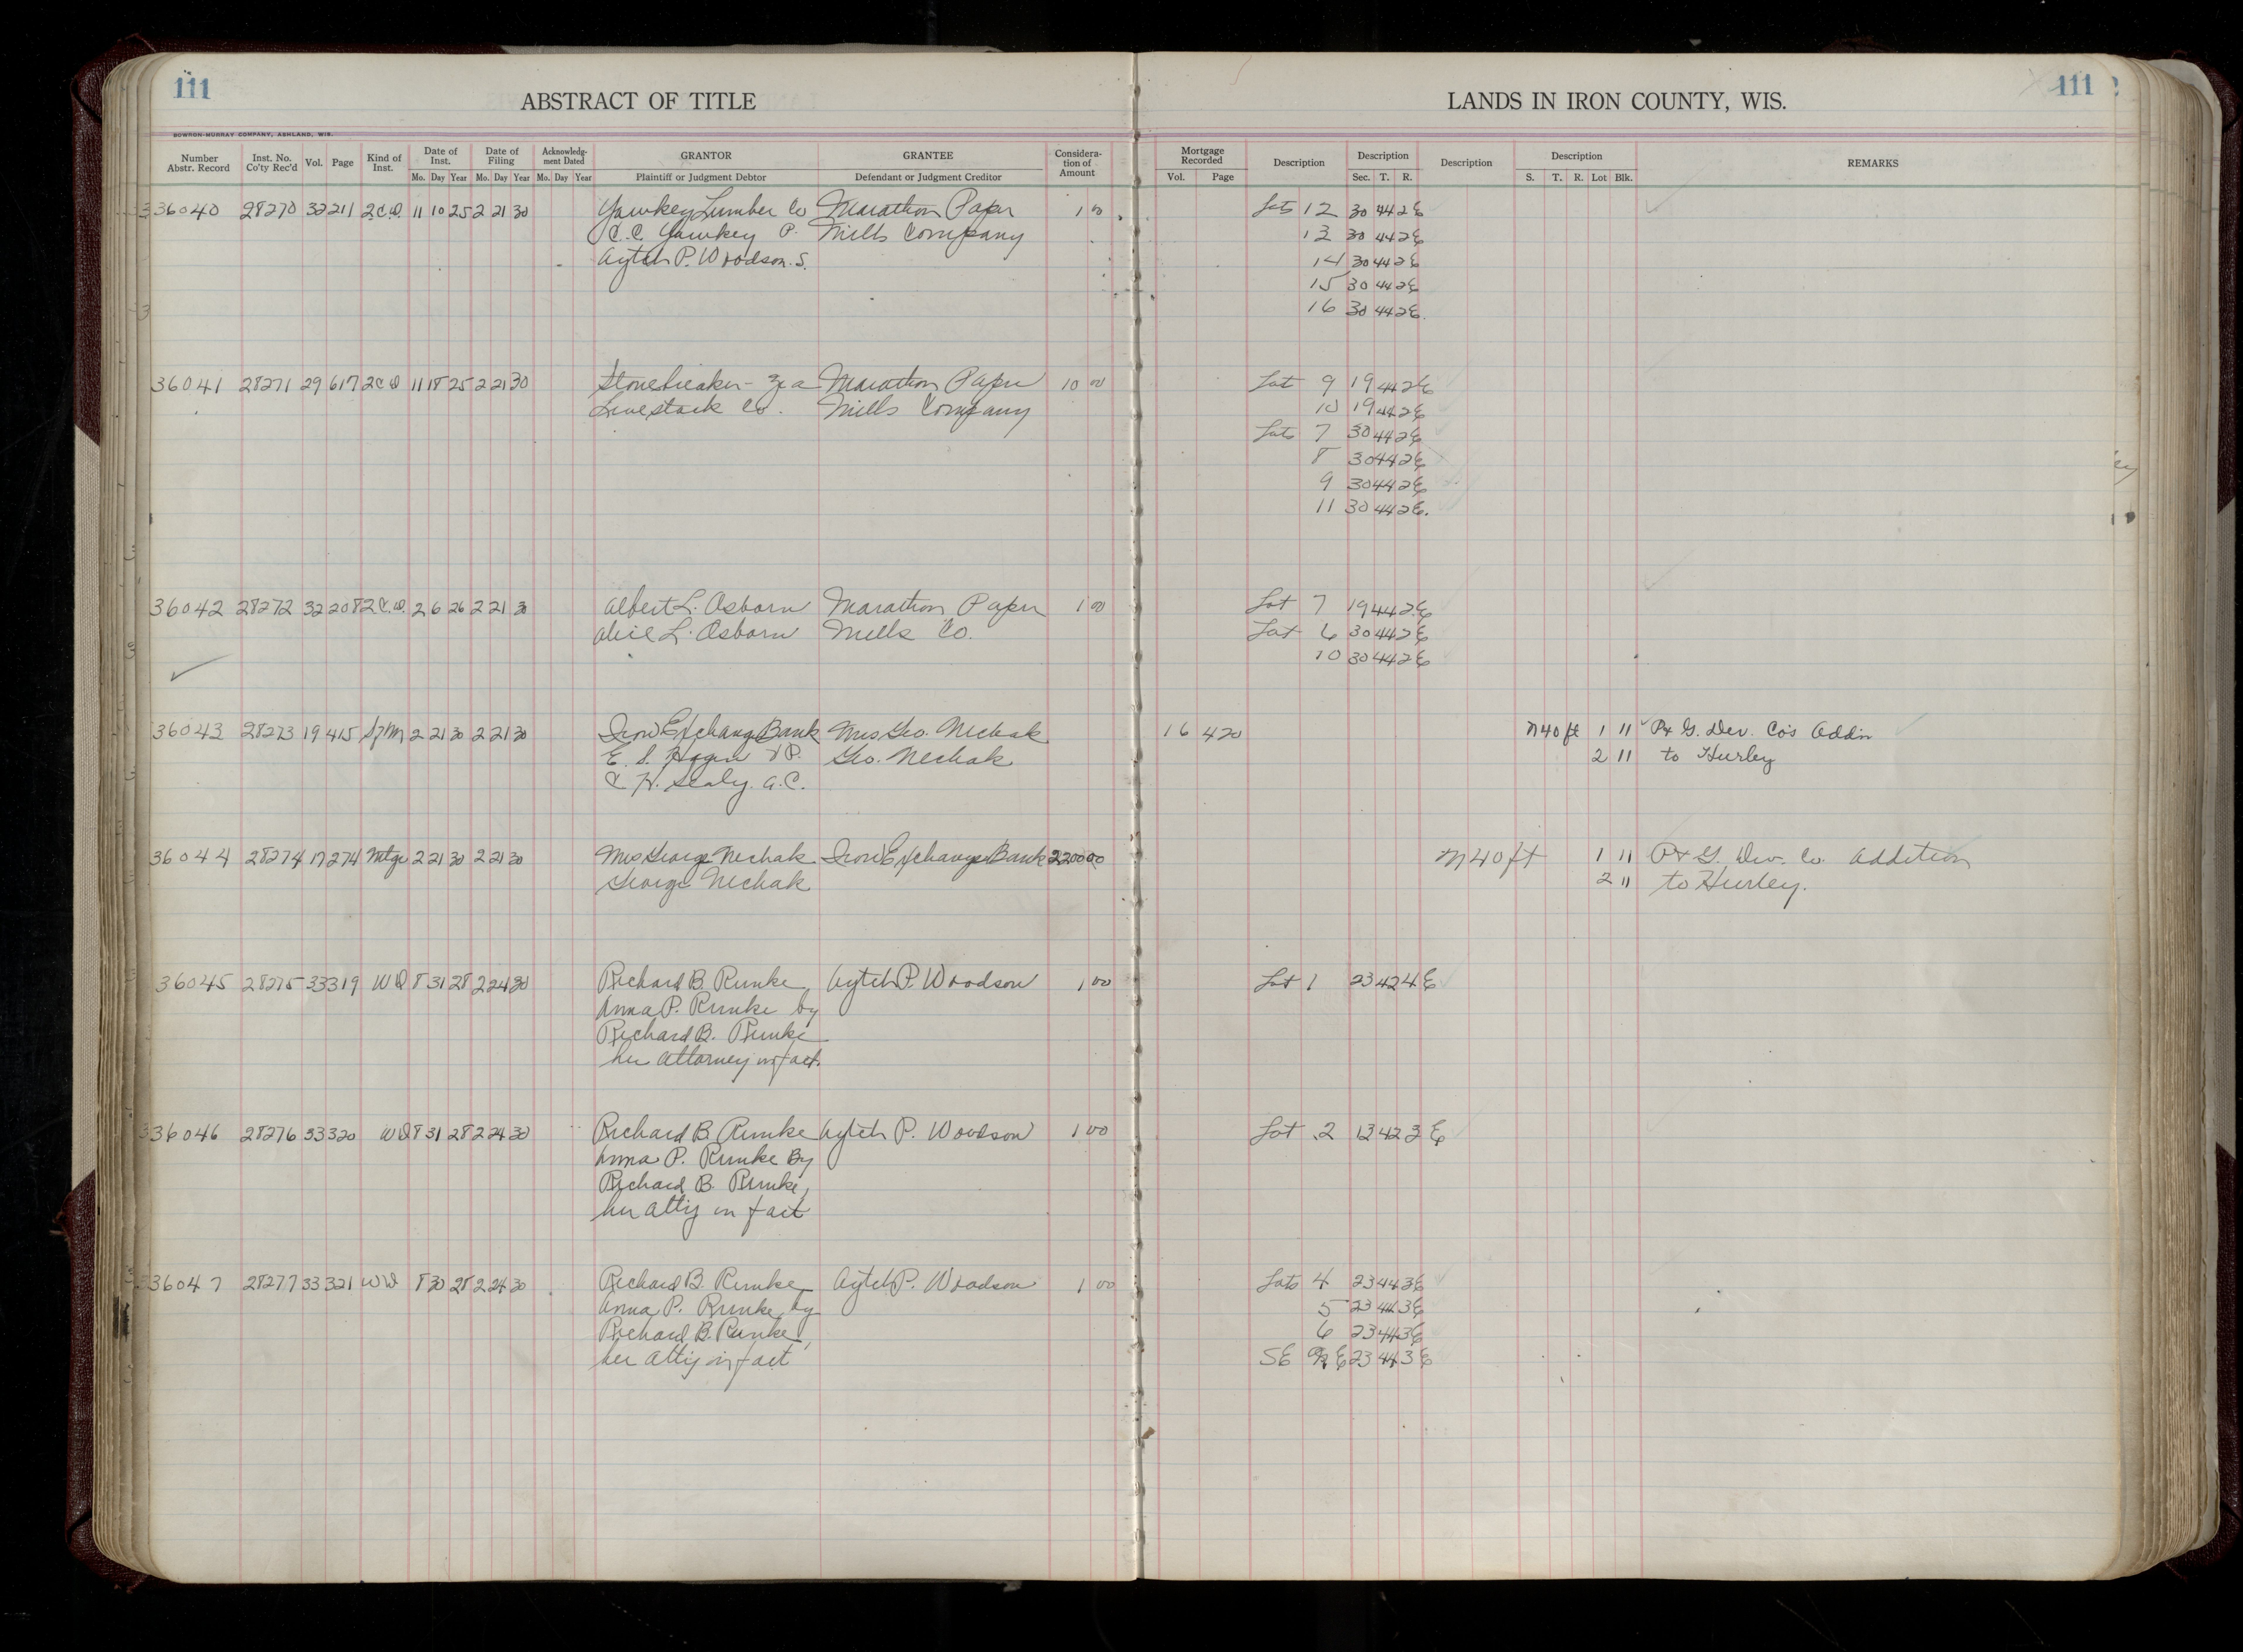 111
ABSTRACT OF TITLE
LANDS IN IRON COUNTY, WIS.
111
BOWRON-MURRAY COMPANY, ASHLAND, WIS.
Number Abstr. Record Inst. No. Co'ty Rec'd Vol. Page Kind of Inst. Date of Inst. Mo. Day Year Date of Filing Mo. Day Year Acknowledg-ment Dated Mo. Day Year GRANTOR Plaintiff or Judgment Debtor GRANTEE Defendant or Judgment Creditor Considera-tion of Amount Mortgage Recorded Vol. Page Description Description Sec. T. R. Description Description S. T. R. Lot Blk. REMARKS
36040 28270 32 211 2.C.D. 11 10 25 2 21 30 Yawkey Lumber Co Marathon Paper 1 00 Lots 12 30 44 2E
C.C. Yawkey P. Mills Company 13 30 44 2E
Aytch P. Woodson. S. 14 30 44 2E
15 30 44 2E
16 30 44 2E.
36041 28271 29 617 2CD 11 18 25 2 21 30 Marathon Paper 10 00 Lot 9 19 44 2E
Livestock Co. Mills Company 10 19 44 2E
Lots 7 30 44 2E
8 30 44 2E
9 30 44 2E
11 30 44 2E.
36042 28272 32 208 2C.D. 2 6 26 2 21 30 Albert L. Osborn Marathon Paper 1 00 Lot 7 19 44 2E
Alice L. Osborn Mills Co. Lot 6 30 44 2E
10 30 44 2E
36043 28273 19 415 2 21 30 2 21 30 Iron Exchange Bank Mrs Geo. Nechak 16 420 N40 ft 1 11 P & G. Dev. Co's Addn
E. S. Hagen V P. Geo. Nechak 2 11 to Hurley
C H. Sealy. A.C.
36044 28274 17 274 Mtge 2 21 30 2 21 30 Mrs George Nechak Iron Exchange Bank 2200 00 N40 ft 1 11 P & G. Dev. Co. Addition
George Nechak 2 11 to Hurley.
36045 28275 33 319 WD 8 31 28 2 24 30 Richard B. Runke, Aytch P. Woodson 1 00 Lot 1 23 42 4E
Anna P. Runke by
Richard B. Runke
her attorney in fact.
36046 28276 33 320 WD 8 31 28 2 24 30 Richard B. Runke Aytch P. Woodson 1 00 Lot 2 13 42 3 E
Anna P. Runke By
Richard B. Runke,
her atty in fact
36047 28277 33 321 WD 8 30 28 2 24 30 Richard B. Runke Aytch P. Woodson 1 00 Lots 4 23 44 3E
Anna P. Runke, by 5 23 44 3E
Richard B. Runke, 6 23 44 3E
her atty in fact SE 23 44 3 E